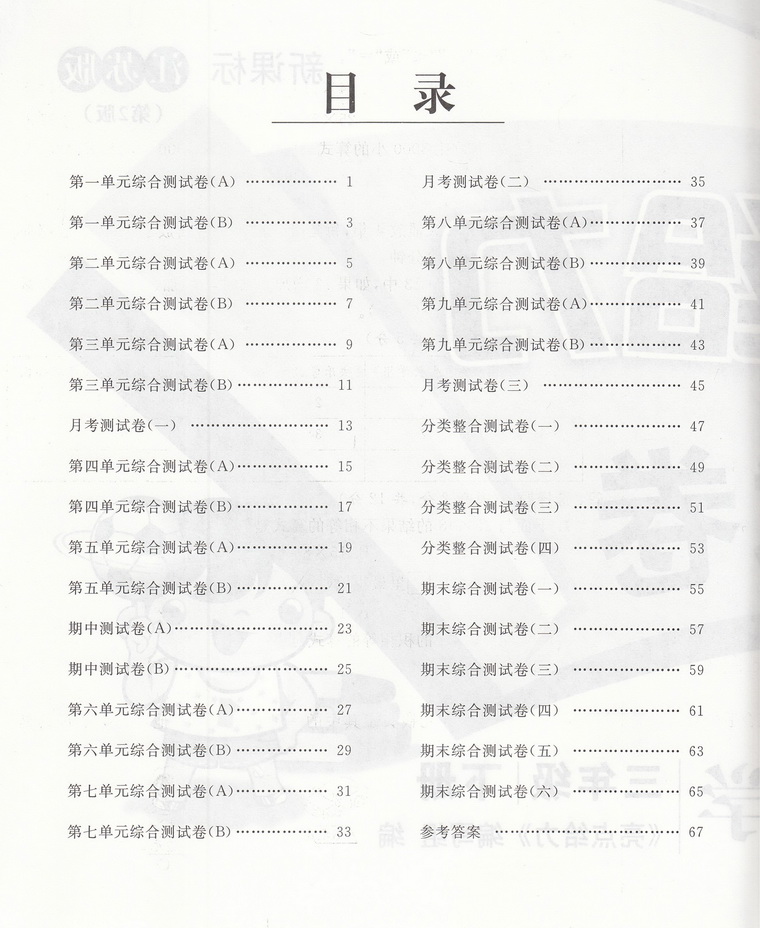 目 录
第一单元综合测试卷(A) ……………… 1
第一单元综合测试卷(B) ……………… 3
第二单元综合测试卷(A) ……………… 5
第二单元综合测试卷(B) ……………… 7
第三单元综合测试卷(A) ……………… 9
第三单元综合测试卷(B)……………… 11
月考测试卷(一) ……………………… 13
第四单元综合测试卷(A)……………… 15
第四单元综合测试卷(B)……………… 17
第五单元综合测试卷(A)……………… 19
第五单元综合测试卷(B)……………… 21
期中测试卷(A)………………………… 23
期中测试卷(B)………………………… 25
第六单元综合测试卷(A)……………… 27
第六单元综合测试卷(B)……………… 29
第七单元综合测试卷(A)……………… 31
第七单元综合测试卷(B)……………… 33
月考测试卷(二) ……………………… 35
第八单元综合测试卷(A)……………… 37
第八单元综合测试卷(B)……………… 39
第九单元综合测试卷(A)……………… 41
第九单元综合测试卷(B)……………… 43
月考测试卷(三) ……………………… 45
分类整合测试卷(一) ………………… 47
分类整合测试卷(二) ………………… 49
分类整合测试卷(三) ………………… 51
分类整合测试卷(四) ………………… 53
期末综合测试卷(一) ………………… 55
期末综合测试卷(二) ………………… 57
期末综合测试卷(三) ………………… 59
期末综合测试卷(四) ………………… 61
期末综合测试卷(五) ………………… 63
期末综合测试卷(六) ………………… 65
参考答案 ……………………………… 67
新课标 江苏版
(第2版)
三年级 下册
《亮点给力》编写组 编